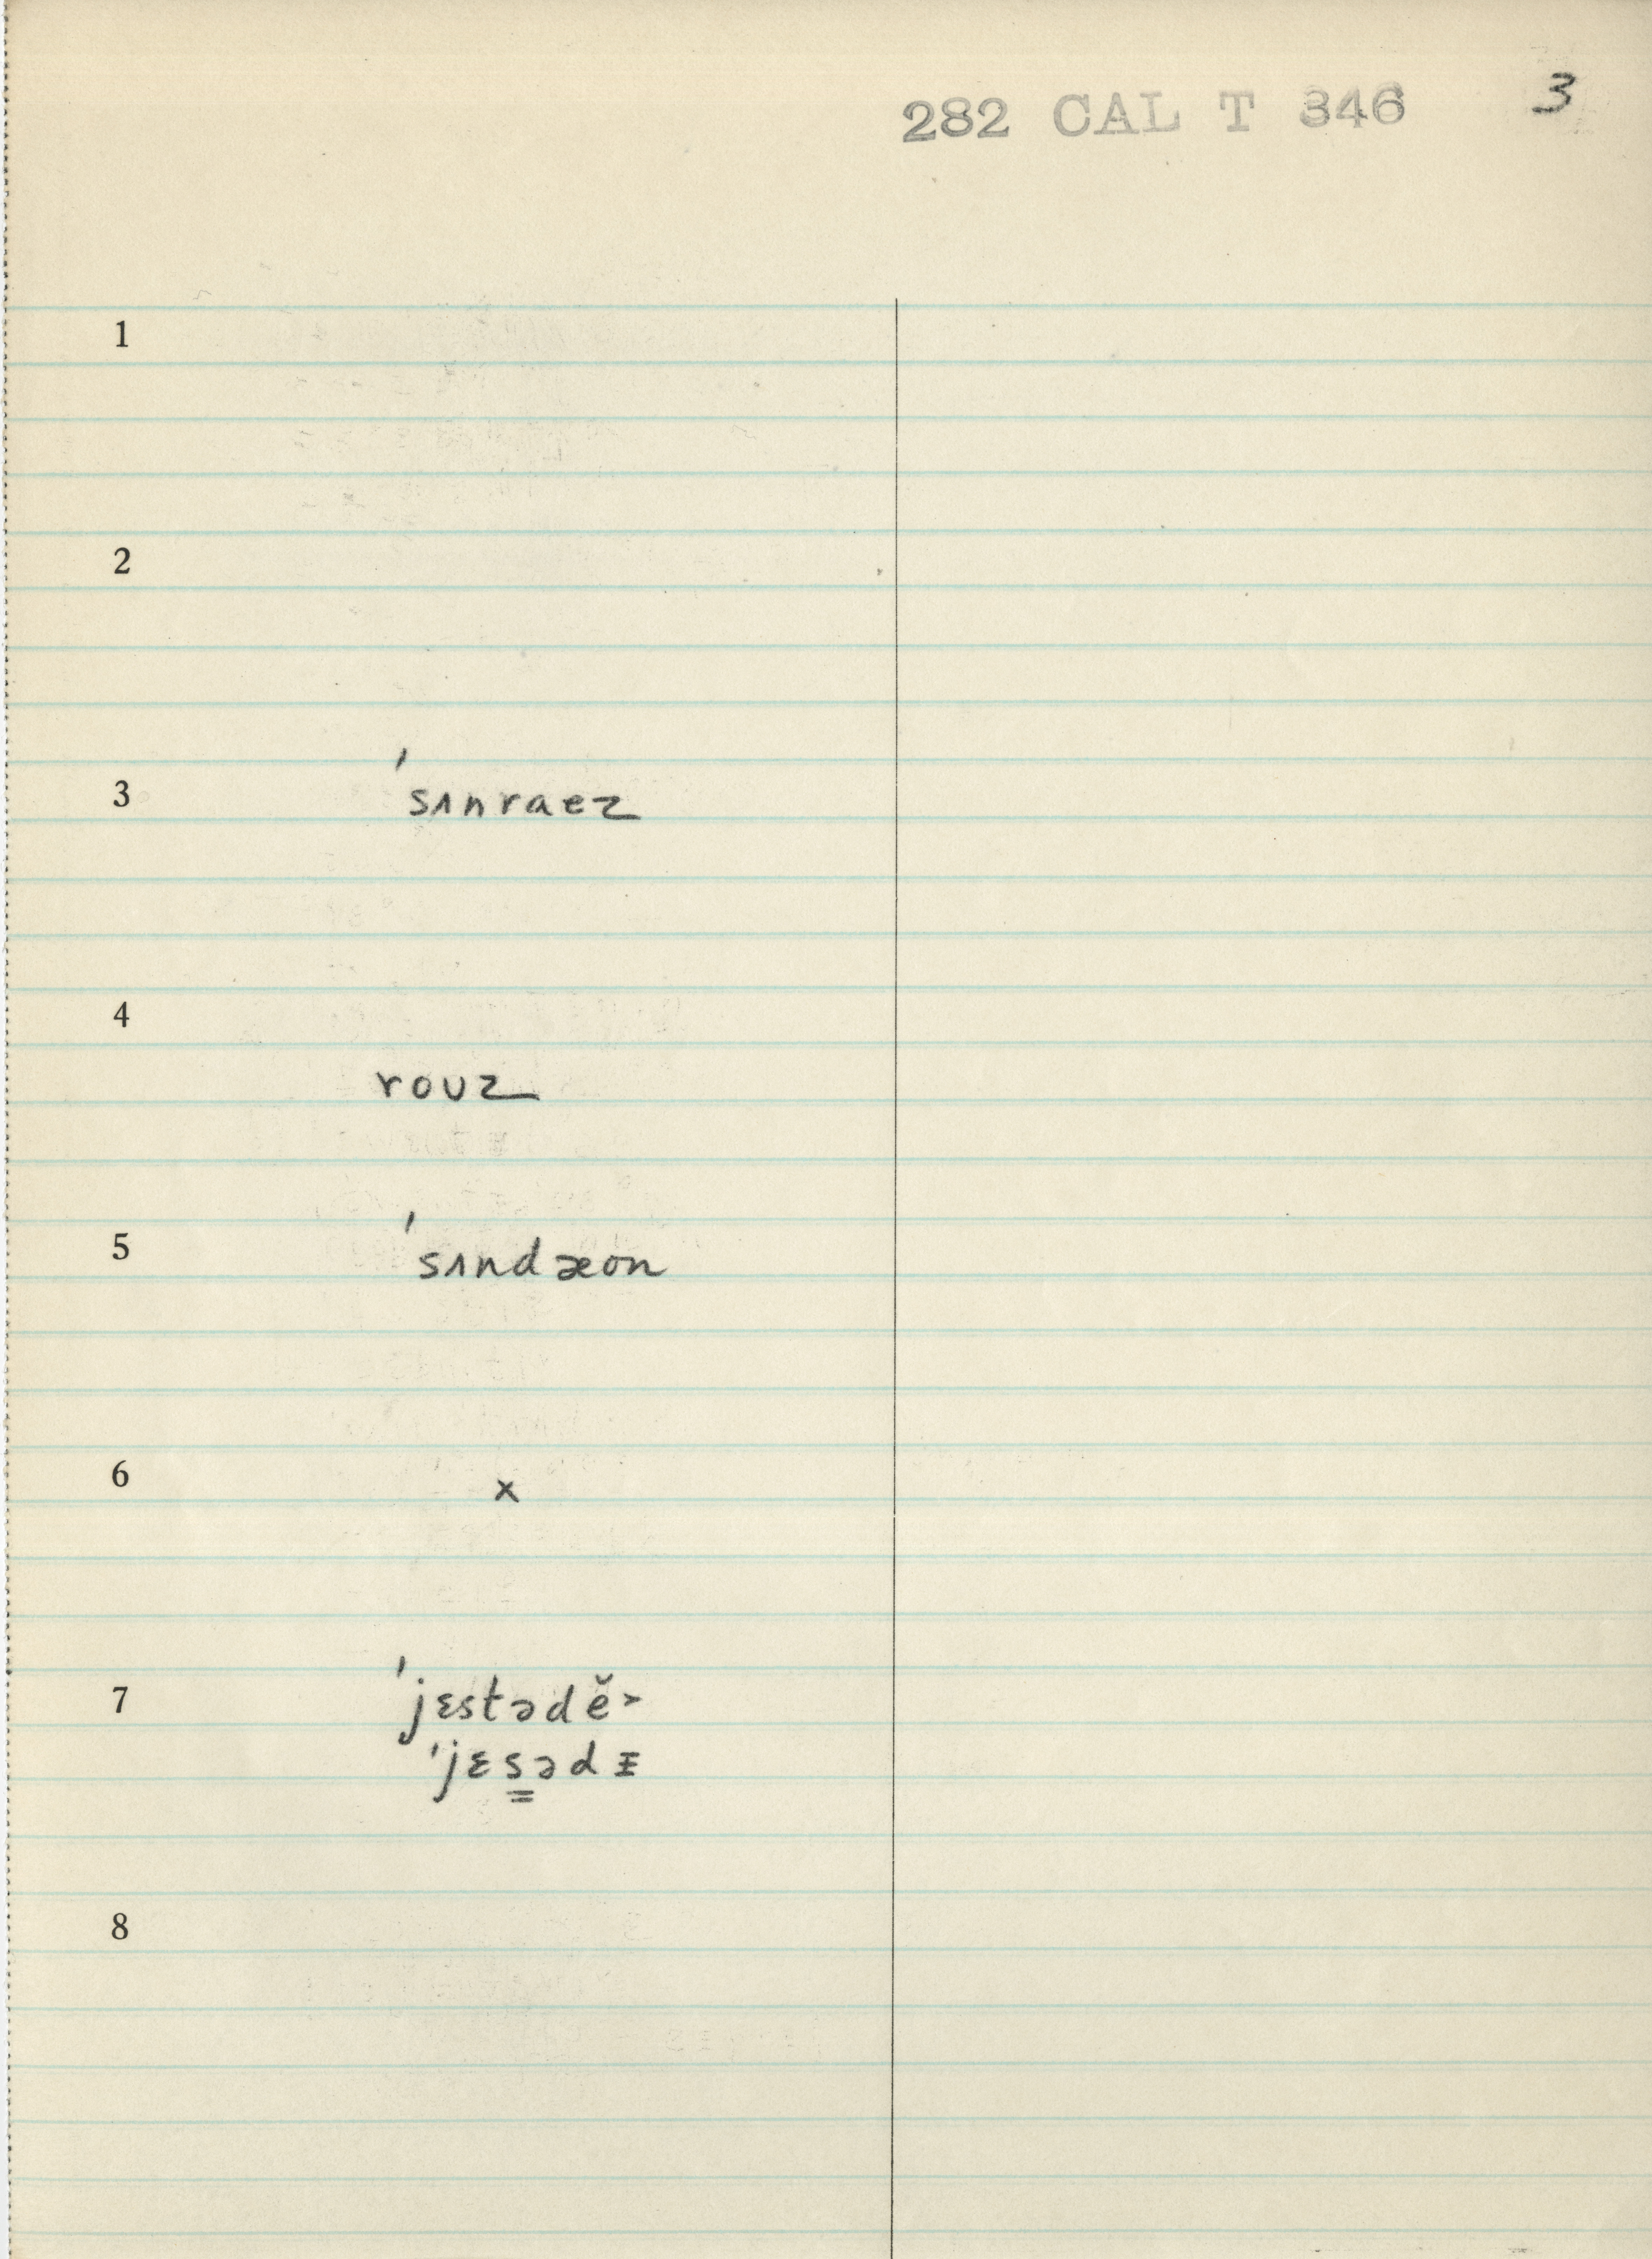 282 CAL T 346 3
1
2
3 'sʌnraez
4
rouz
5 'sʌndæon
6 x
7 'jɛstədĕ˃
'jɛs̳ədᵻ
8